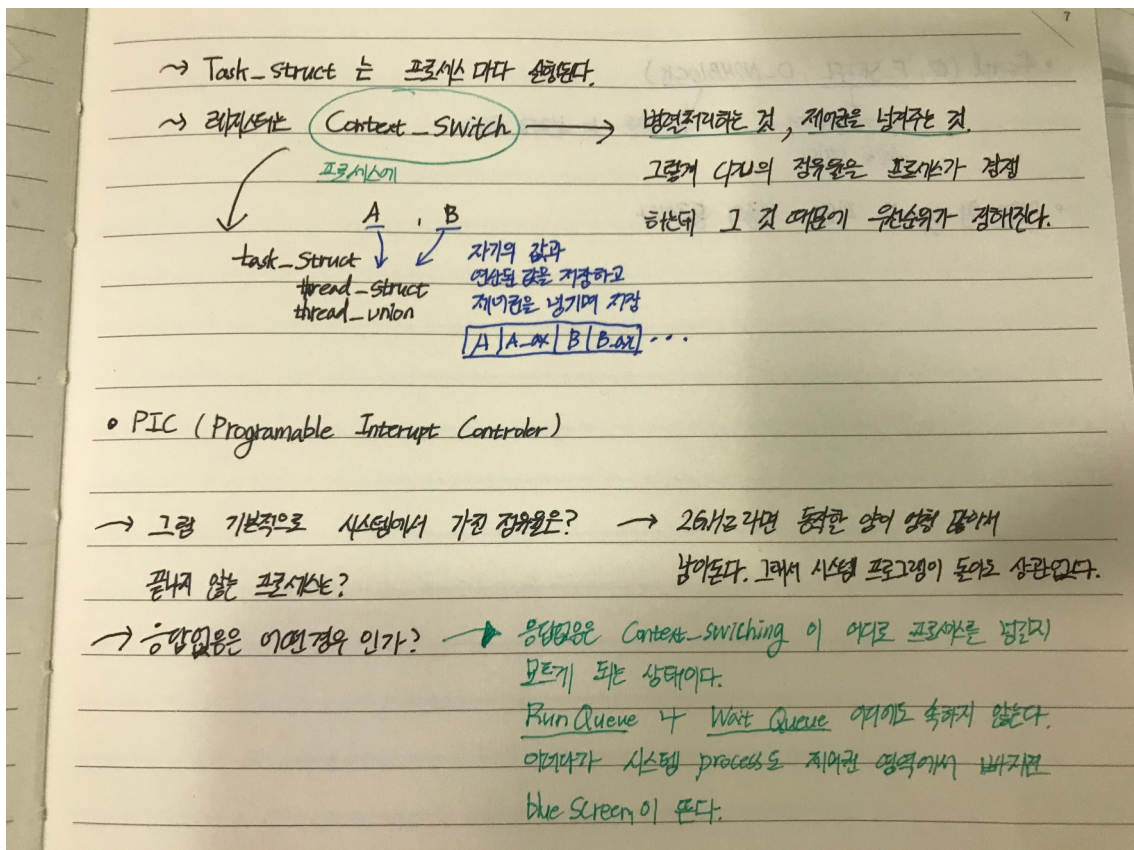 7
~> Task_struct 는 프로세스 마다 실행된다.
~> 레지스터는 Context_switch → 병렬처리하는 것, 제어권을 넘겨주는 것.
프로세스에
그렇게 CPU의 점유율을 프로세스가 경쟁
하는데 그 것 때문에 우선순위가 정해진다.
A , B
task_struct
thread_struct
thread_union
자기의 값과
연산된 값을 저장하고
제어권을 넘기며 저장
A | A_ax | B | B_ax ...
• PIC (Programable Interupt Controler)
→ 그럼 기본적으로 시스템에서 가진 점유율은?
끝나지 않는 프로세스는?
→ 2GHz 라면 동작할 양이 엄청 많아서
남아돈다. 그래서 시스템 프로그램이 돌아도 상관없다.
→ 응답없음은 어떤경우 인가?
→ 응답없음은 Context_switching 이 어디로 프로세스를 넘길지
모르게 되는 상태이다.
Run Queue 나 Wait Queue 어디에도 속하지 않는다.
이러다가 시스템 process도 제어권 영역에서 빠지면
blue screen이 뜬다.